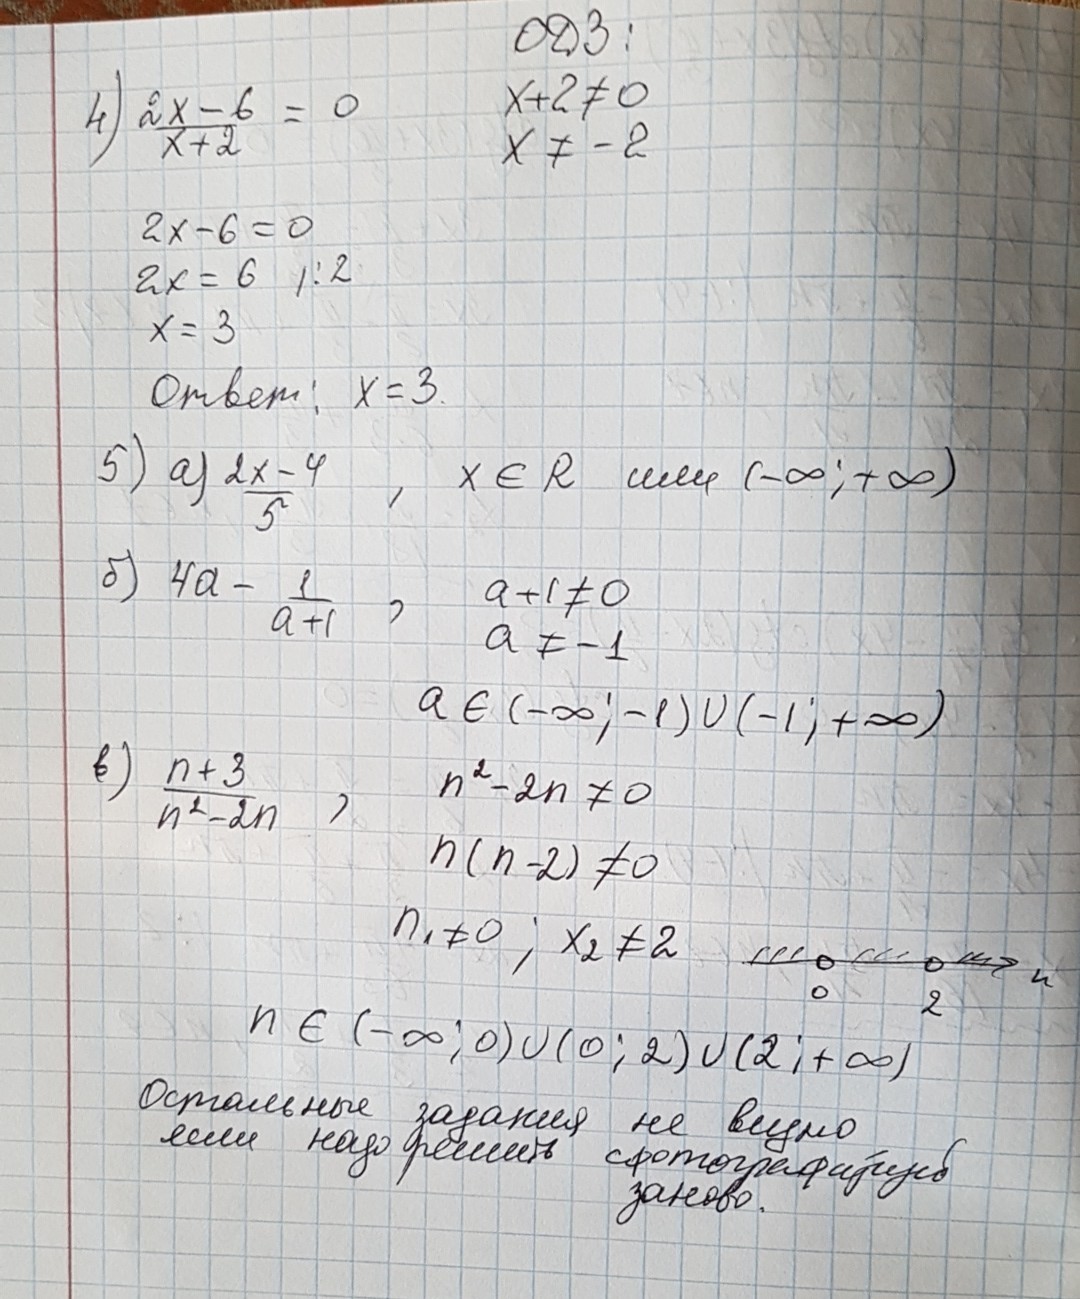 ОДЗ:
4) (2x-6)/(x+2) = 0 x+2≠0
x ≠ -2
2x-6=0
2x = 6 |:2
x = 3
Ответ: x=3.
5) а) (2x-4)/5 , x ∈ R или (-∞;+∞)
б) 4a - 1/(a+1) , a+1≠0
a ≠ -1
a ∈ (-∞;-1)∪(-1;+∞)
в) (n+3)/(n²-2n) , n²-2n ≠0
n(n-2) ≠0
n₁≠0 ; x₂≠2
0 2 n
n ∈ (-∞;0)∪(0;2)∪(2;+∞)
Остальные задания не видно
если надо решить сфотографируй
заново.